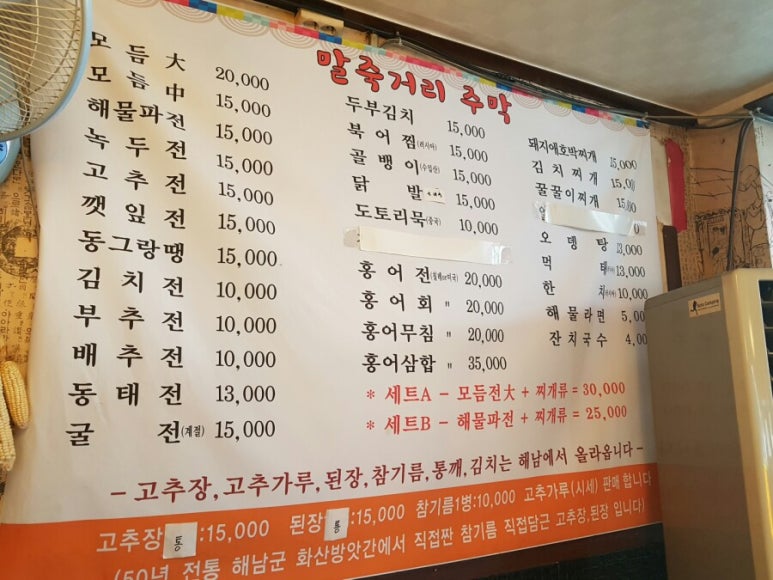 말죽거리 주막
모듬大 20,000
모듬中 15,000
해물파전 15,000
녹두전 15,000
고추전 15,000
깻잎전 15,000
동그랑땡 15,000
김치전 10,000
부추전 10,000
배추전 10,000
동태전 13,000
굴전(계절) 15,000
두부김치 15,000
북어찜(러시아) 15,000
골뱅이(수입산) 15,000
닭발 15,000
도토리묵(중국) 10,000
홍어전(칠레or미국) 20,000
홍어회 〃 20,000
홍어무침 〃 20,000
홍어삼합 〃 35,000
돼지애호박찌개 15,000
김치찌개 15,00
꿀꿀이찌개 15,00
오뎅탕 13,000
먹태 13,000
한치 10,000
해물라면 5,00
잔치국수 4,00
* 세트A - 모듬전大 + 찌개류 = 30,000
* 세트B - 해물파전 + 찌개류 = 25,000
- 고추장,고추가루,된장,참기름,통깨,김치는 해남에서 올라옵니다 -
고추장 통 :15,000 된장 통 :15,000 참기름1병:10,000 고추가루(시세) 판매합니다
(50년 전통 해남군 화산방앗간에서 직접짠 참기름 직접담근 고추장,된장 입니다)